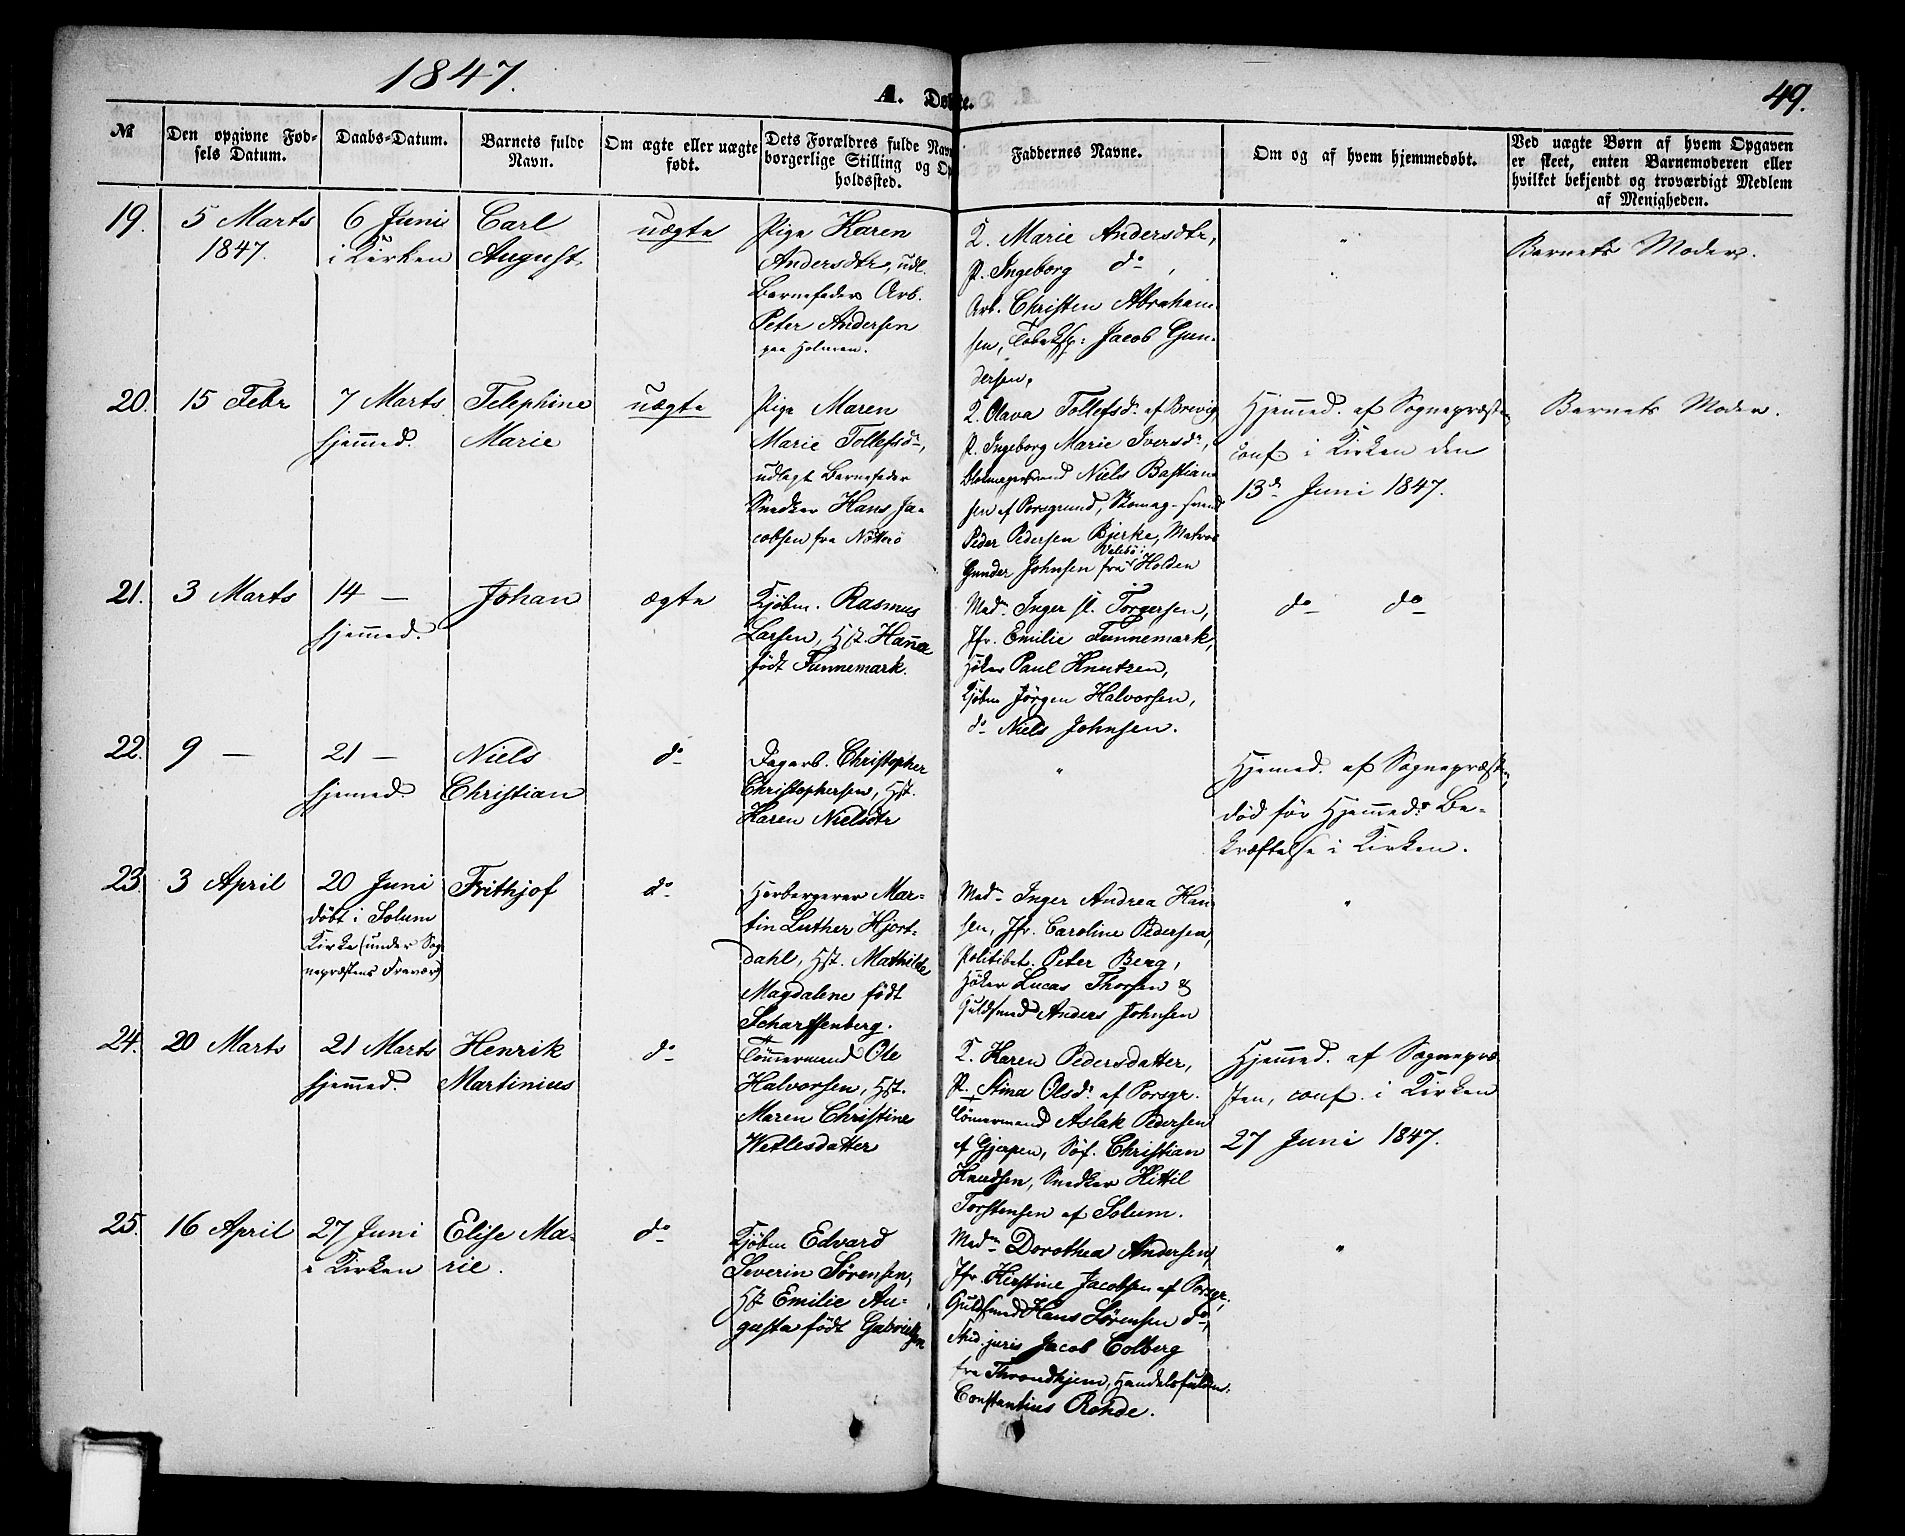 1847.
A. Døbte.
49.
No
Den opgivne Fød-
sels Datum.
Daabs-Datum.
Barnets fulde
Navn.
Om ægte eller uægte
født.
Dets Forældres fulde Navn
borgerlige Stilling og Op
holdssted.
Faddernes Navne.
Om og af hvem hjemmedøbt.
Ved uægte Børn af hvem Opgaven
er skeet, enten Barnemoderen eller
hvilket bekjendt og troværdigt Medlem
af Menigheden.
19.
5 Marts
1847.
6 Juni
i Kirken
Carl
August.
uægte
Pige Karen
Andersdtr, udl.
Barnefader Arb.
Peter Andersen
paa Holmen.
K. Marie Andersdtr,
P. Ingeborg do,
Arb. Christen Abraham-
sen, Jacob Gun-
dersen.
"
Barnets Moder.
20.
15 Febr
7 Marts
hjemmed.
Telephine
Marie
uægte
Pige Maren
Marie Tollefsdr,
udlagt Barnefader
Snedker Hans Ja-
cobsen fra Nötterö
K. Olava Tollefsdr af Brevig
P. Ingeborg Marie Iversdr,
Niels Bastian-
sen af Porsgrund, Skomag. svend
Peder Pedersen Bjerke, Matros
Gunder Johnsen fra Valebö i Holden
Hjemmed. af Sognepræsten,
conf. i Kirken den
13de Juni 1847.
Barnets Moder.
21.
3 Marts
14 —
hjemmed.
Johan
ægte
Kjöbm. Rasmus
Larsen, Hst. Hanna
födt Funnemark.
Mad. Inger sl. Torgersen,
Jfr. Emilie Funnemark,
Höker Paul Knutzen,
Kjöbm Jörgen Halvorsen,
do Niels Johnsen.
do do
22.
9 —
21 —
hjemmed.
Niels
Christian
do
Dagarb. Christopher
Christophersen, Hst.
Karen Nielsdtr
"
Hjemmed. af Sognepræsten,
död för Hjemmed: Be-
kræftelse i Kirken.
23.
3 April
20 Juni
döbt i Solum
Kirke (under Sog-
nepræstens Fravær)
Frithjof
do
Herbergerer Mar-
tin Luther Hjort-
dahl, Hst. Mathilde
Magdalene födt
Scharffenberg.
Mad. Inger Andrea Han-
sen, Jfr. Caroline Pedersen,
Politibet. Peter Berg,
Höker Lucas Thorsen &
Guldsmed Anders Johnsen
"
24.
20 Marts
21 Marts
hjemmed.
Henrik
Martinius
do
Tömmermand Ole
Halvorsen, Hst.
Maren Christine
Wetlesdatter
K. Karen Pedersdatter,
P. Stina Olsdr af Porsgr.
Tömmermand Aslak Pedersen
af Gjerpen, Söf. Christian
Knudsen, Snedker Kittil
Torstensen af Solum.
Hjemmed. af Sognepræ-
sten, conf. i Kirken
27 Juni 1847.
25.
16 April
27 Juni
i Kirken
Elise Ma-
rie.
do
Kjöbm Edvard
Severin Sörensen,
Hst Emilie Au-
gusta födt Gabrielsen
Madm Dorothea Andersen,
Jfr. Kirstine Jacobsen af Porsgr,
Guldsmed Hans Sörensen do,
Stud. juris Jacob Colberg
fra Throndhjem, Handelsfuldm.
Constantius Rohde.
"